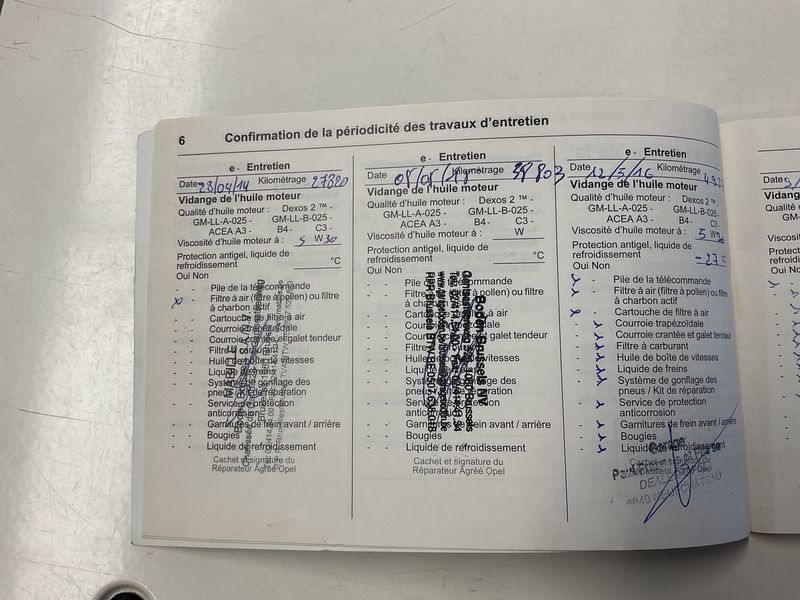 6 Confirmation de la périodicité des travaux d'entretien
e - Entretien
Date 23/04/14 Kilométrage 27820
Vidange de l'huile moteur
Qualité d'huile moteur : Dexos 2 ™ -
GM-LL-A-025 - GM-LL-B-025 -
ACEA A3 - B4- C3 -
Viscosité d'huile moteur à : 5 W 30
Protection antigel, liquide de
refroidissement °C
Oui Non
Pile de la télécommande
Filtre à air (filtre à pollen) ou filtre
à charbon actif
Cartouche de filtre à air
Courroie trapézoïdale
Courroie crantée et galet tendeur
Filtre à carburant
Huile de boîte de vitesses
Liquide de freins
Système de gonflage des
pneus / Kit de réparation
Service de protection
anticorrosion
Garnitures de frein avant / arrière
Bougies
Liquide de refroidissement
Cachet et signature du
Réparateur Agréé Opel
e - Entretien
Date Kilométrage
Vidange de l'huile moteur
Qualité d'huile moteur : Dexos 2 ™ -
GM-LL-A-025 - GM-LL-B-025 -
ACEA A3 - B4- C3 -
Viscosité d'huile moteur à : W
Protection antigel, liquide de
refroidissement °C
Oui Non
Pile de la télécommande
Filtre à air (filtre à pollen) ou filtre
à charbon actif
Cartouche de filtre à air
Courroie trapézoïdale
Courroie crantée et galet tendeur
Filtre à carburant
Huile de boîte de vitesses
Liquide de freins
Système de gonflage des
pneus / Kit de réparation
Service de protection
anticorrosion
Garnitures de frein avant / arrière
Bougies
Liquide de refroidissement
Cachet et signature du
Réparateur Agréé Opel
e - Entretien
Date 12/5/16 Kilométrage
Vidange de l'huile moteur
Qualité d'huile moteur : Dexos 2 ™ -
GM-LL-A-025 - GM-LL-B-025 -
ACEA A3 - B4- C3 -
Viscosité d'huile moteur à : 5 W 30
Protection antigel, liquide de
refroidissement -27 °C
Oui Non
Pile de la télécommande
Filtre à air (filtre à pollen) ou filtre
à charbon actif
Cartouche de filtre à air
Courroie trapézoïdale
Courroie crantée et galet tendeur
Filtre à carburant
Huile de boîte de vitesses
Liquide de freins
Système de gonflage des
pneus / Kit de réparation
Service de protection
anticorrosion
Garnitures de frein avant / arrière
Bougies
Liquide de refroidissement
Cachet et signature du
Réparateur Agréé Opel
NEUFCHATEAU